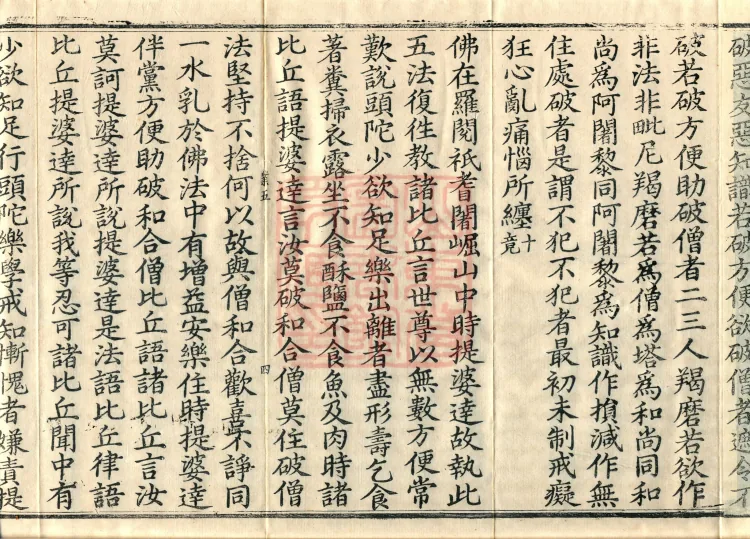 破惡友惡知識若破方便欲破僧者遮令不
破若破方便助破僧者二三人羯磨若欲作
非法非毗尼羯磨若爲僧爲塔爲和尚同和
尚爲阿闍黎同阿闍黎爲知識作損減作無
住處破者是謂不犯不犯者最初未制戒癡
狂心亂痛惱所纏十竟
佛在羅閱祇耆闍崛山中時提婆達故執此
五法復徃教諸比丘言世尊以無數方便常
歎說頭陀少欲知足樂出離者盡形壽乞食
著糞掃衣露坐不食酥鹽不食魚及肉時諸
比丘語提婆達言汝莫破和合僧莫住破僧
法堅持不捨何以故與僧和合歡喜不諍同
一水乳於佛法中有增益安樂住時提婆達
伴黨方便助破和合僧比丘語諸比丘言汝
莫訶提婆達所說提婆達是法語比丘律語
比丘提婆達所說我等忍可諸比丘聞中有
少欲知足行頭陀樂學戒知慚愧者嫌責提
第五
四